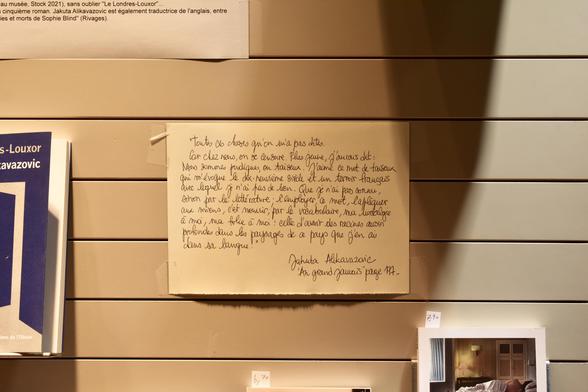 au musée, Stock 2021), sans oublier "Le Londres-Louxor"...
cinquième roman. Jakuta Alikavazovic est également traductrice de l'anglais, entre
ies et morts de Sophie Blind" (Rivages).
s-Louxor
kavazovic
"Toutes ces choses qu'on n'a pas dites.
Car chez nous, on se censure. Plus jeune, j'aurais dit:
Nous sommes pudiques, ou taiseux. J'aime ce mot de taiseux
qui m'évoque le dix-neuvième siècle et un terroir français
avec lequel je n'ai pas de lien. Que je n'ai pas connu,
sinon par la littérature; l'employer, ce mot, l'appliquer
aux miens, c'est nourrir, par le vocabulaire, ma
à moi, ma folie à moi: celle d'avoir des racines aussi
profondes dans les paysages de ce pays que j'en ai
dans sa langue"
Jakuta Alikavazovic
"Au grand jamais" page 117.
8,90